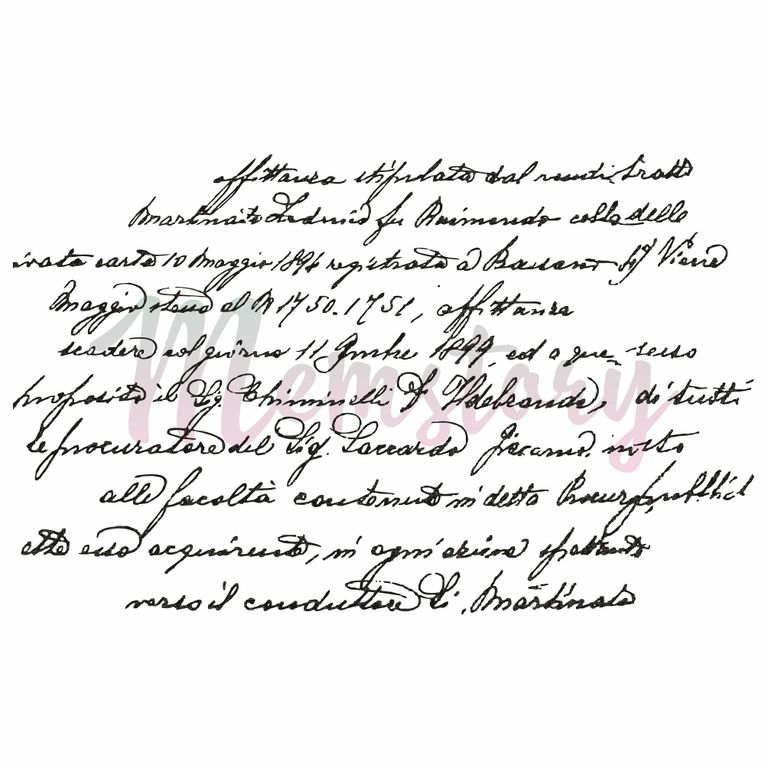 affittanza stipulata dal
Martinato Lodovico fu Raimondo colla
ivata carta 10 Maggio 1894 registrata a Bassano
Maggio stesso al N 1750.1751, affittanza
scadere col giorno 11 9mbre 1899, ed a que
proposito il Sig. Chiminelli Ildebrando, di tutti
le procuratore del Sig. Saccardo Giacomo in
alle facoltà contenute in detta Procura
esso acquirente, in ogni azione spettante
verso il conduttore Martinato
Memstory